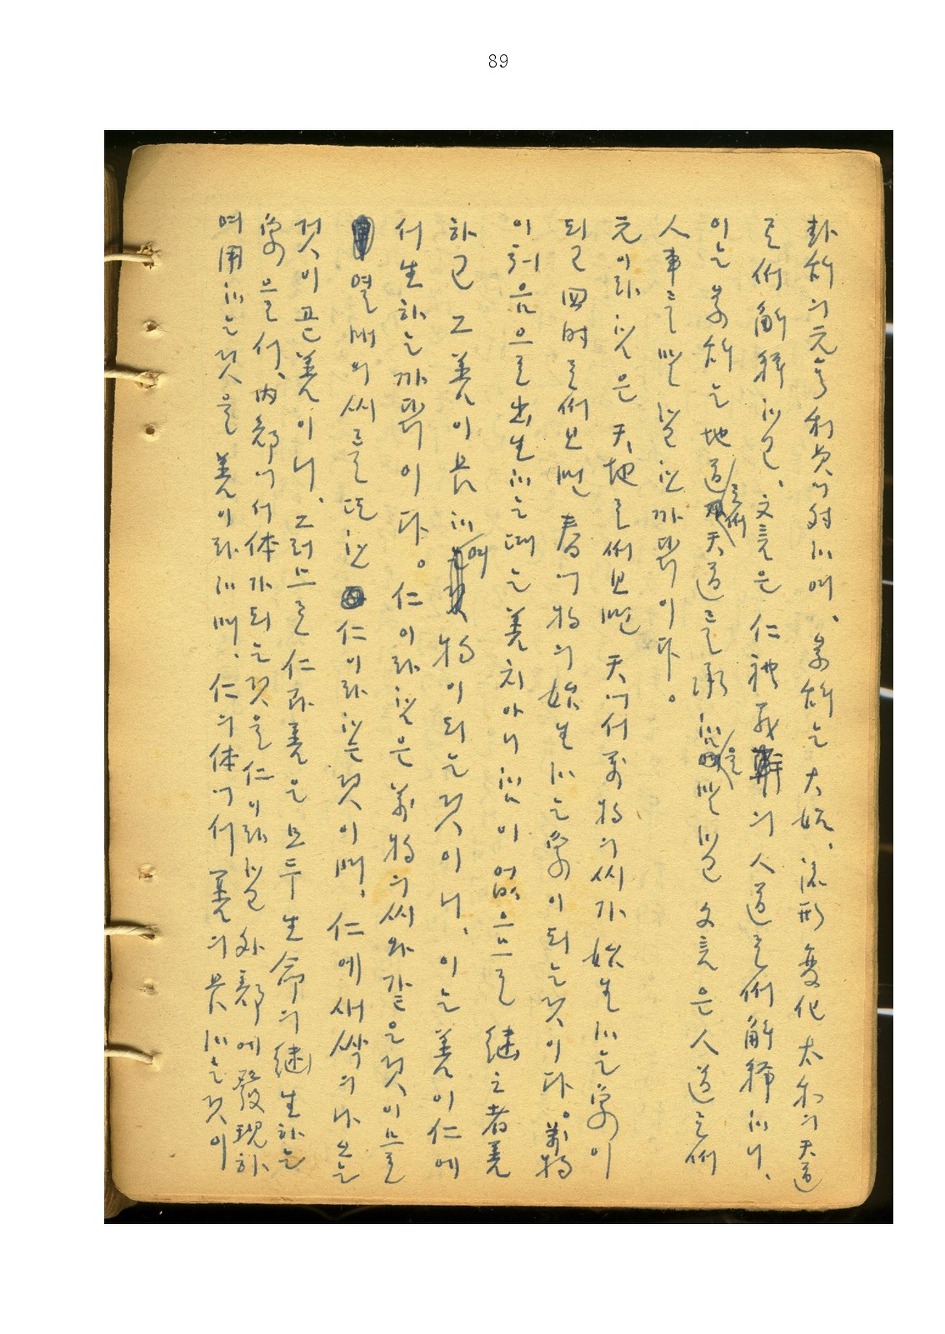 89
卦辭의 元亨利貞에 対하여, 彖辭는 大始, 流形 変化 太和의 天道
로써 解釋하고, 文言은 仁禮義幹의 人道로써 解釋하니,
이는 彖辭는 地道로써 天道를 承하였음을 말하고 文言은 人道로써
人事를 말하고 한 까닭이다.
元이라 함은 天地로써 보면 天에서 萬物의 씨가 始生하는 象이
되고 四時로써 보면 春에 物의 始生하는 象이 되는 것이다. 萬物
이 처음으로 出生하는 때는 善치 아니함이 없으므로 継之者善
하고 그 善이 長하여 物이 되는 것이니, 이는 善이 仁에
서 生하는 까닭이다. 仁이라 함은 萬物의 씨와 같은 것이므로
열매의 씨를 또한 仁이라 하는 것이며, 仁에 새싹의 나오는
것이 곧 善이니, 그러므로 仁과 善은 모두 生命의 継生하는
象으로서, 內部에서 体가 되는 것을 仁이라 하고 外部에 發現하
여 用하는 것을 善이라 하며, 仁의 体에서 善의 長하는 것이